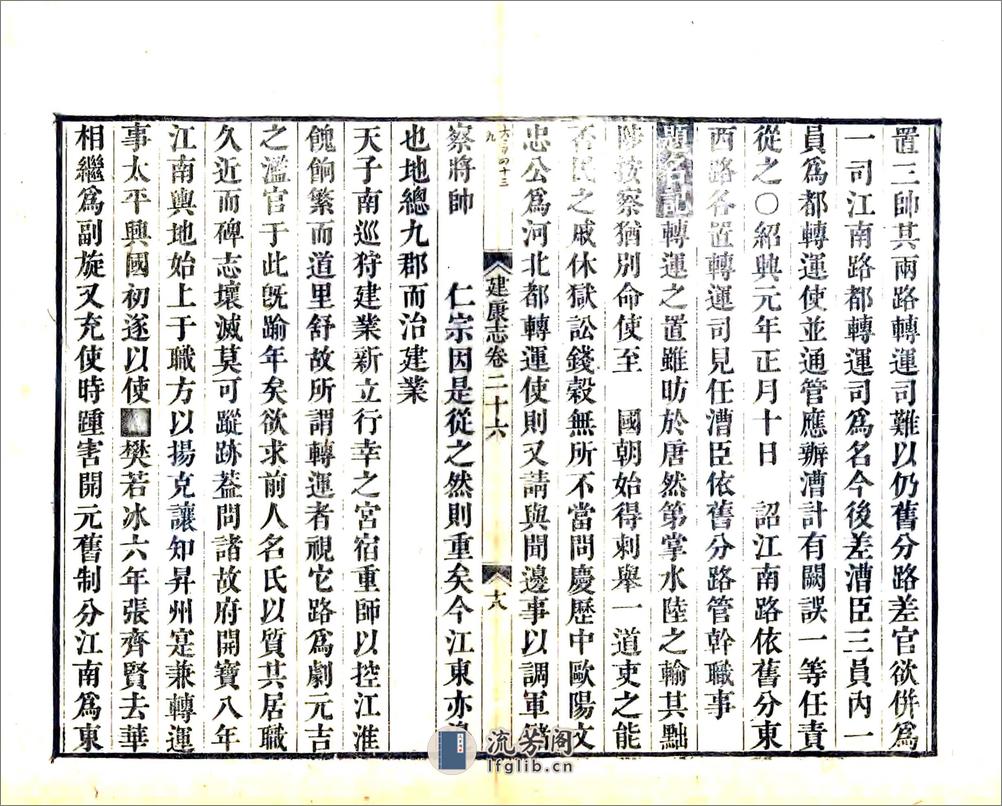 置三帥其兩路轉運司難以仍舊分路差官欲併爲
一司江南路都轉運司爲名今後差漕臣三員內一
員爲都轉運使並通管應辦漕計有闕誤一等任責
從之〇紹興元年正月十日 詔江南路依舊分東
西路各置轉運司見任漕臣依舊分路管幹職事
題名記轉運之置雖昉於唐然第掌水陸之輸其黜
陟按察猶別命使至 國朝始得刺舉一道吏之能
否民之戚休獄訟錢穀無所不當問慶歷中歐陽文
忠公爲河北都轉運使則又請與聞邊事以調軍儲
大百四十三
九
建康志卷二十六
十八
察將帥 仁宗因是從之然則重矣今江東亦
也地總九郡而治建業
天子南巡狩建業新立行幸之宮宿重師以控江淮
餽餉繁而道里舒故所謂轉運者視它路爲劇元吉
之濫官于此旣踰年矣欲求前人名氏以質其居職
久近而碑志壞滅莫可蹤跡葢問諸故府開寶八年
江南輿地始上于職方以揚克讓知昇州寔兼轉運
事太平興國初遂以使 樊若冰六年張齊賢去華
相繼爲副旋又充使時踵害開元舊制分江南爲東
流芳阁
lfglib.cn